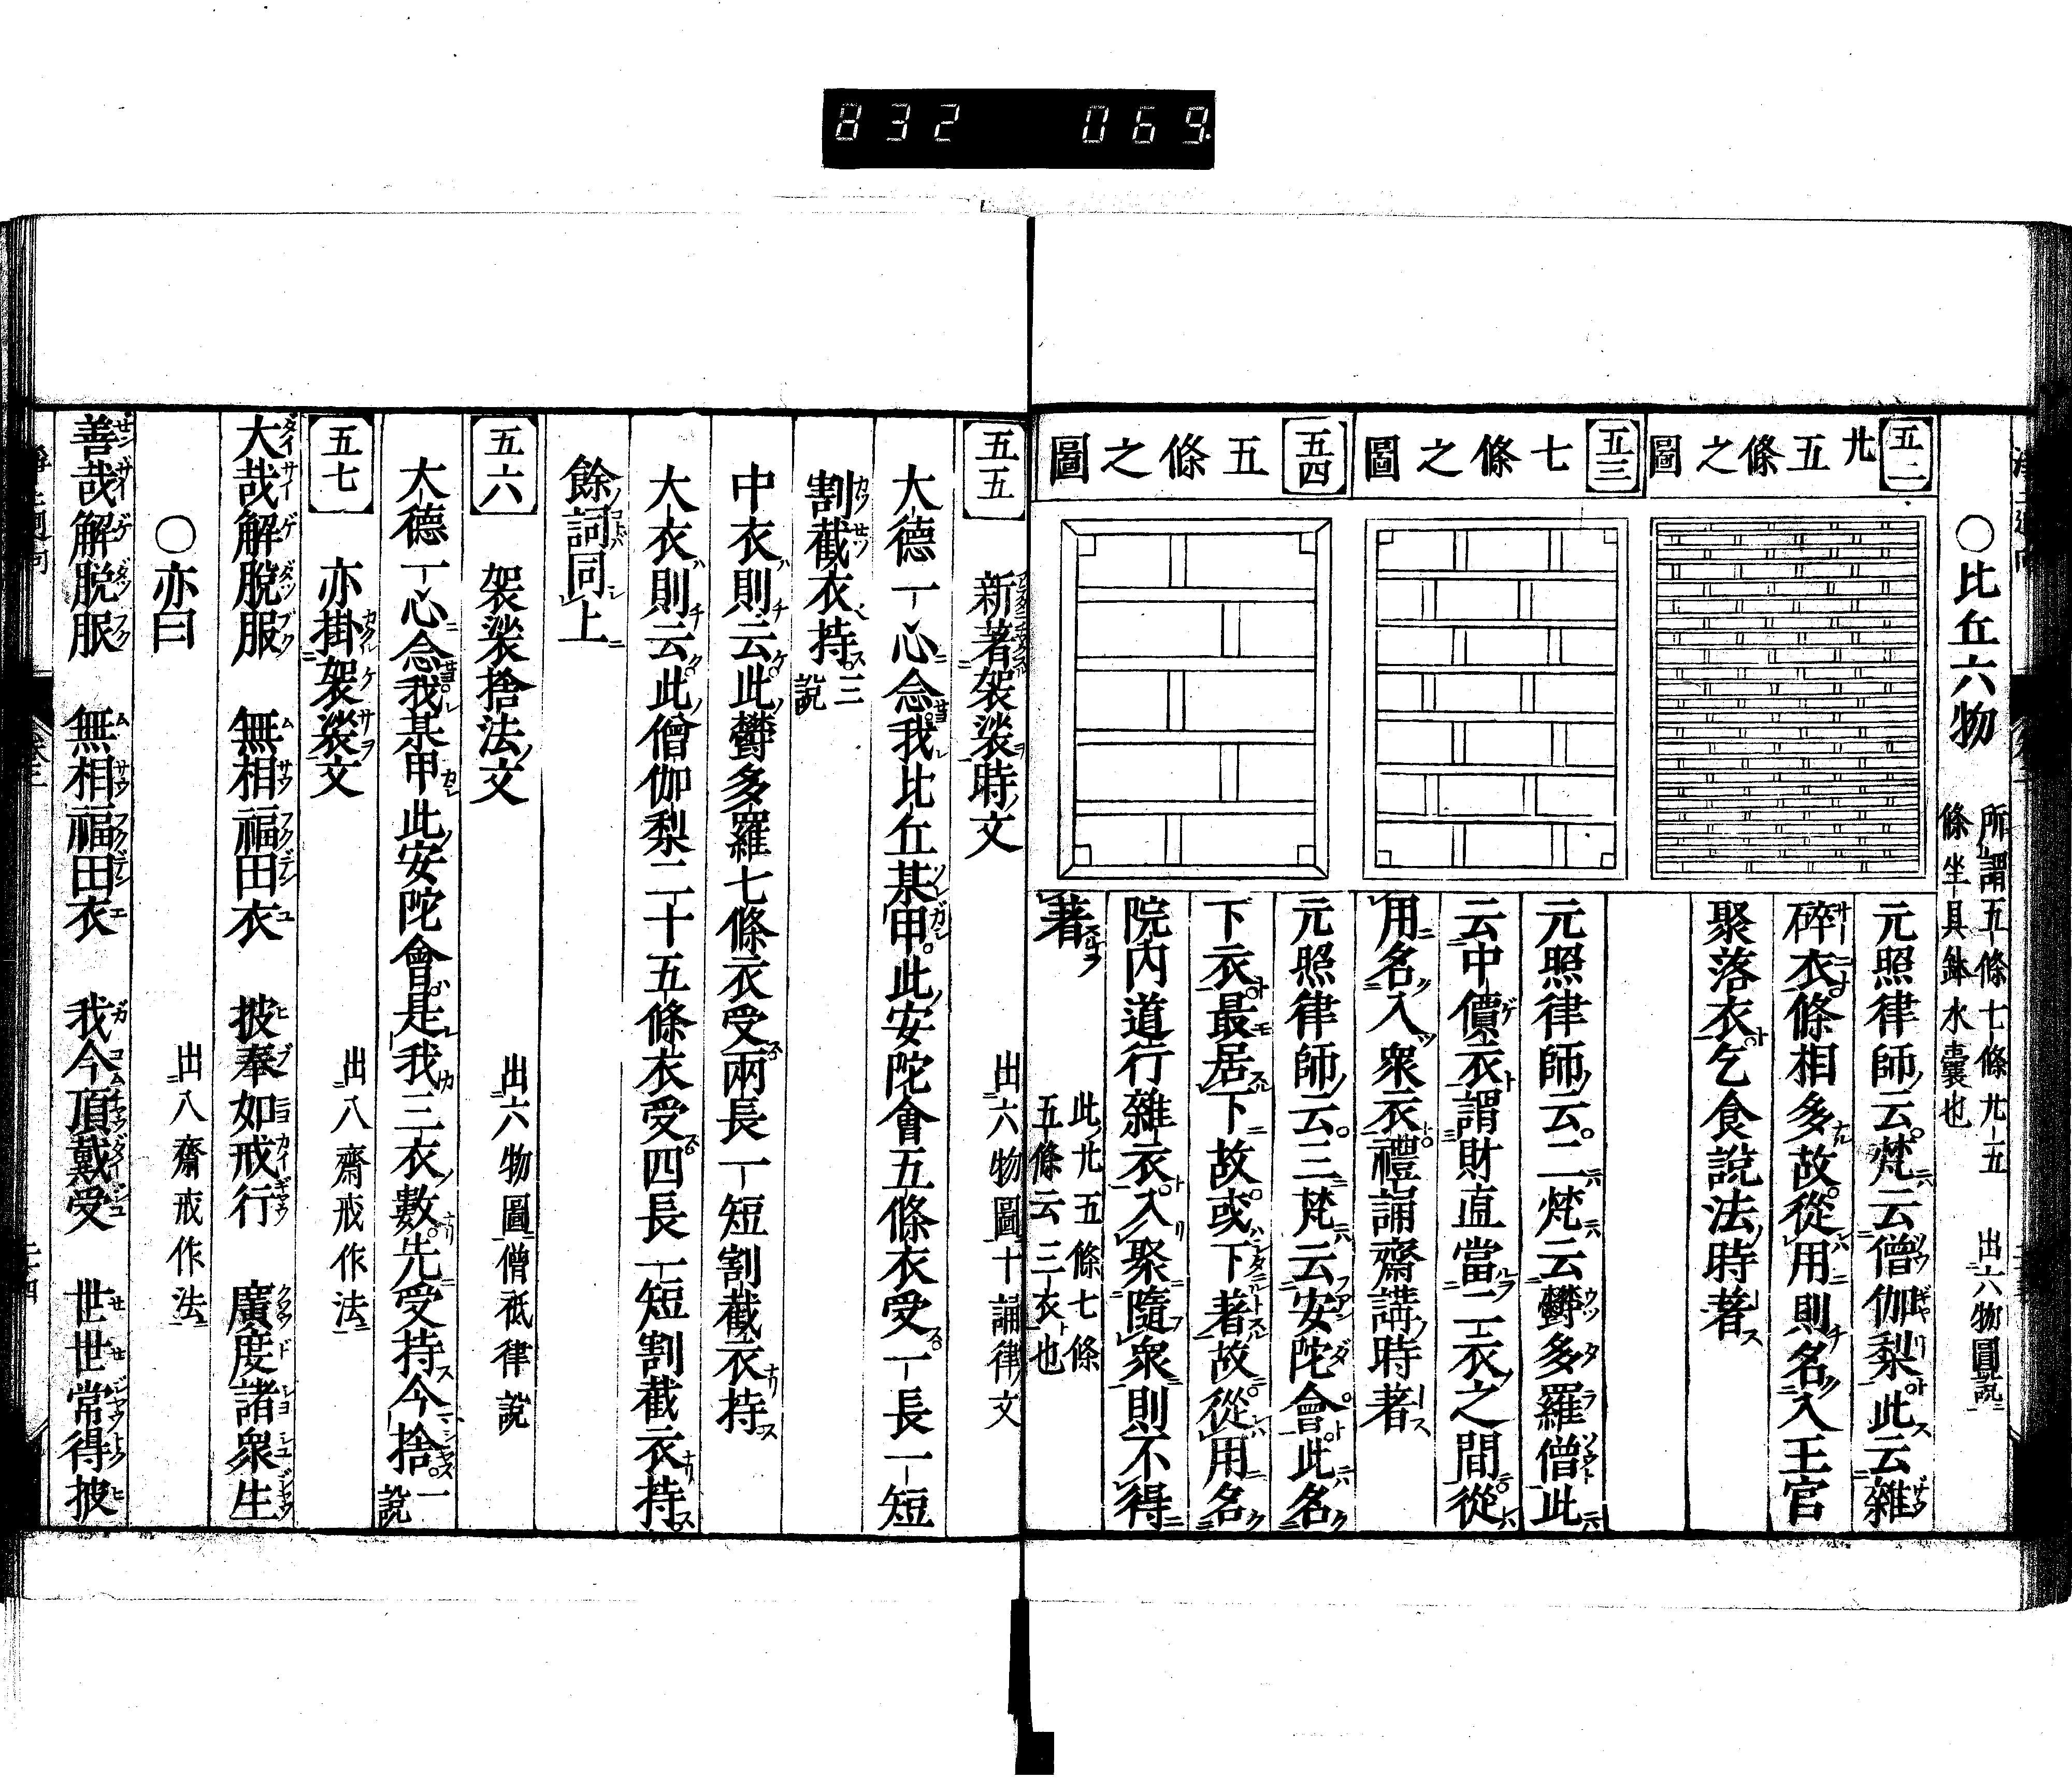 832 069
〇比丘六物 所謂五條七條廿五條坐具鉢水囊也 出六物圖說
五二
廿五條之圖
元照律師云梵云僧伽梨此云雜
碎衣條相多故從用則名入王宮
聚落衣乞食說法時著
五三
七條之圖
元照律師云二梵云鬱多羅僧此
云中價衣謂財直當二衣之間從
用名入衆衣禮誦齋講時著
五四
五條之圖
元照律師云三梵云安陀會此名
下衣最居下故或下著故從用名
院內道行雜衣入聚隨衆則不得
著 此廿五條七條五條云三衣也
五五 新著袈裟時文 出六物圖十誦律文
大德一心念我比丘某甲此安陀會五條衣受一長一短
割截衣持三說
中衣則云此鬱多羅七條衣受兩長一短割截衣持
大衣則云此僧伽梨二十五條衣受四長一短割截衣持
餘詞同上
五六 袈裟捨法文 出六物圖僧祇律說
大德一心念我某甲此安陀會是我三衣數先受持今捨一說
五七 亦掛袈裟文 出八齋戒作法
大哉解脫服 無相福田衣 披奉如戒行 廣度諸衆生
〇亦曰 出八齋戒作法
善哉解脫服 無相福田衣 我今頂戴受 世世常得披